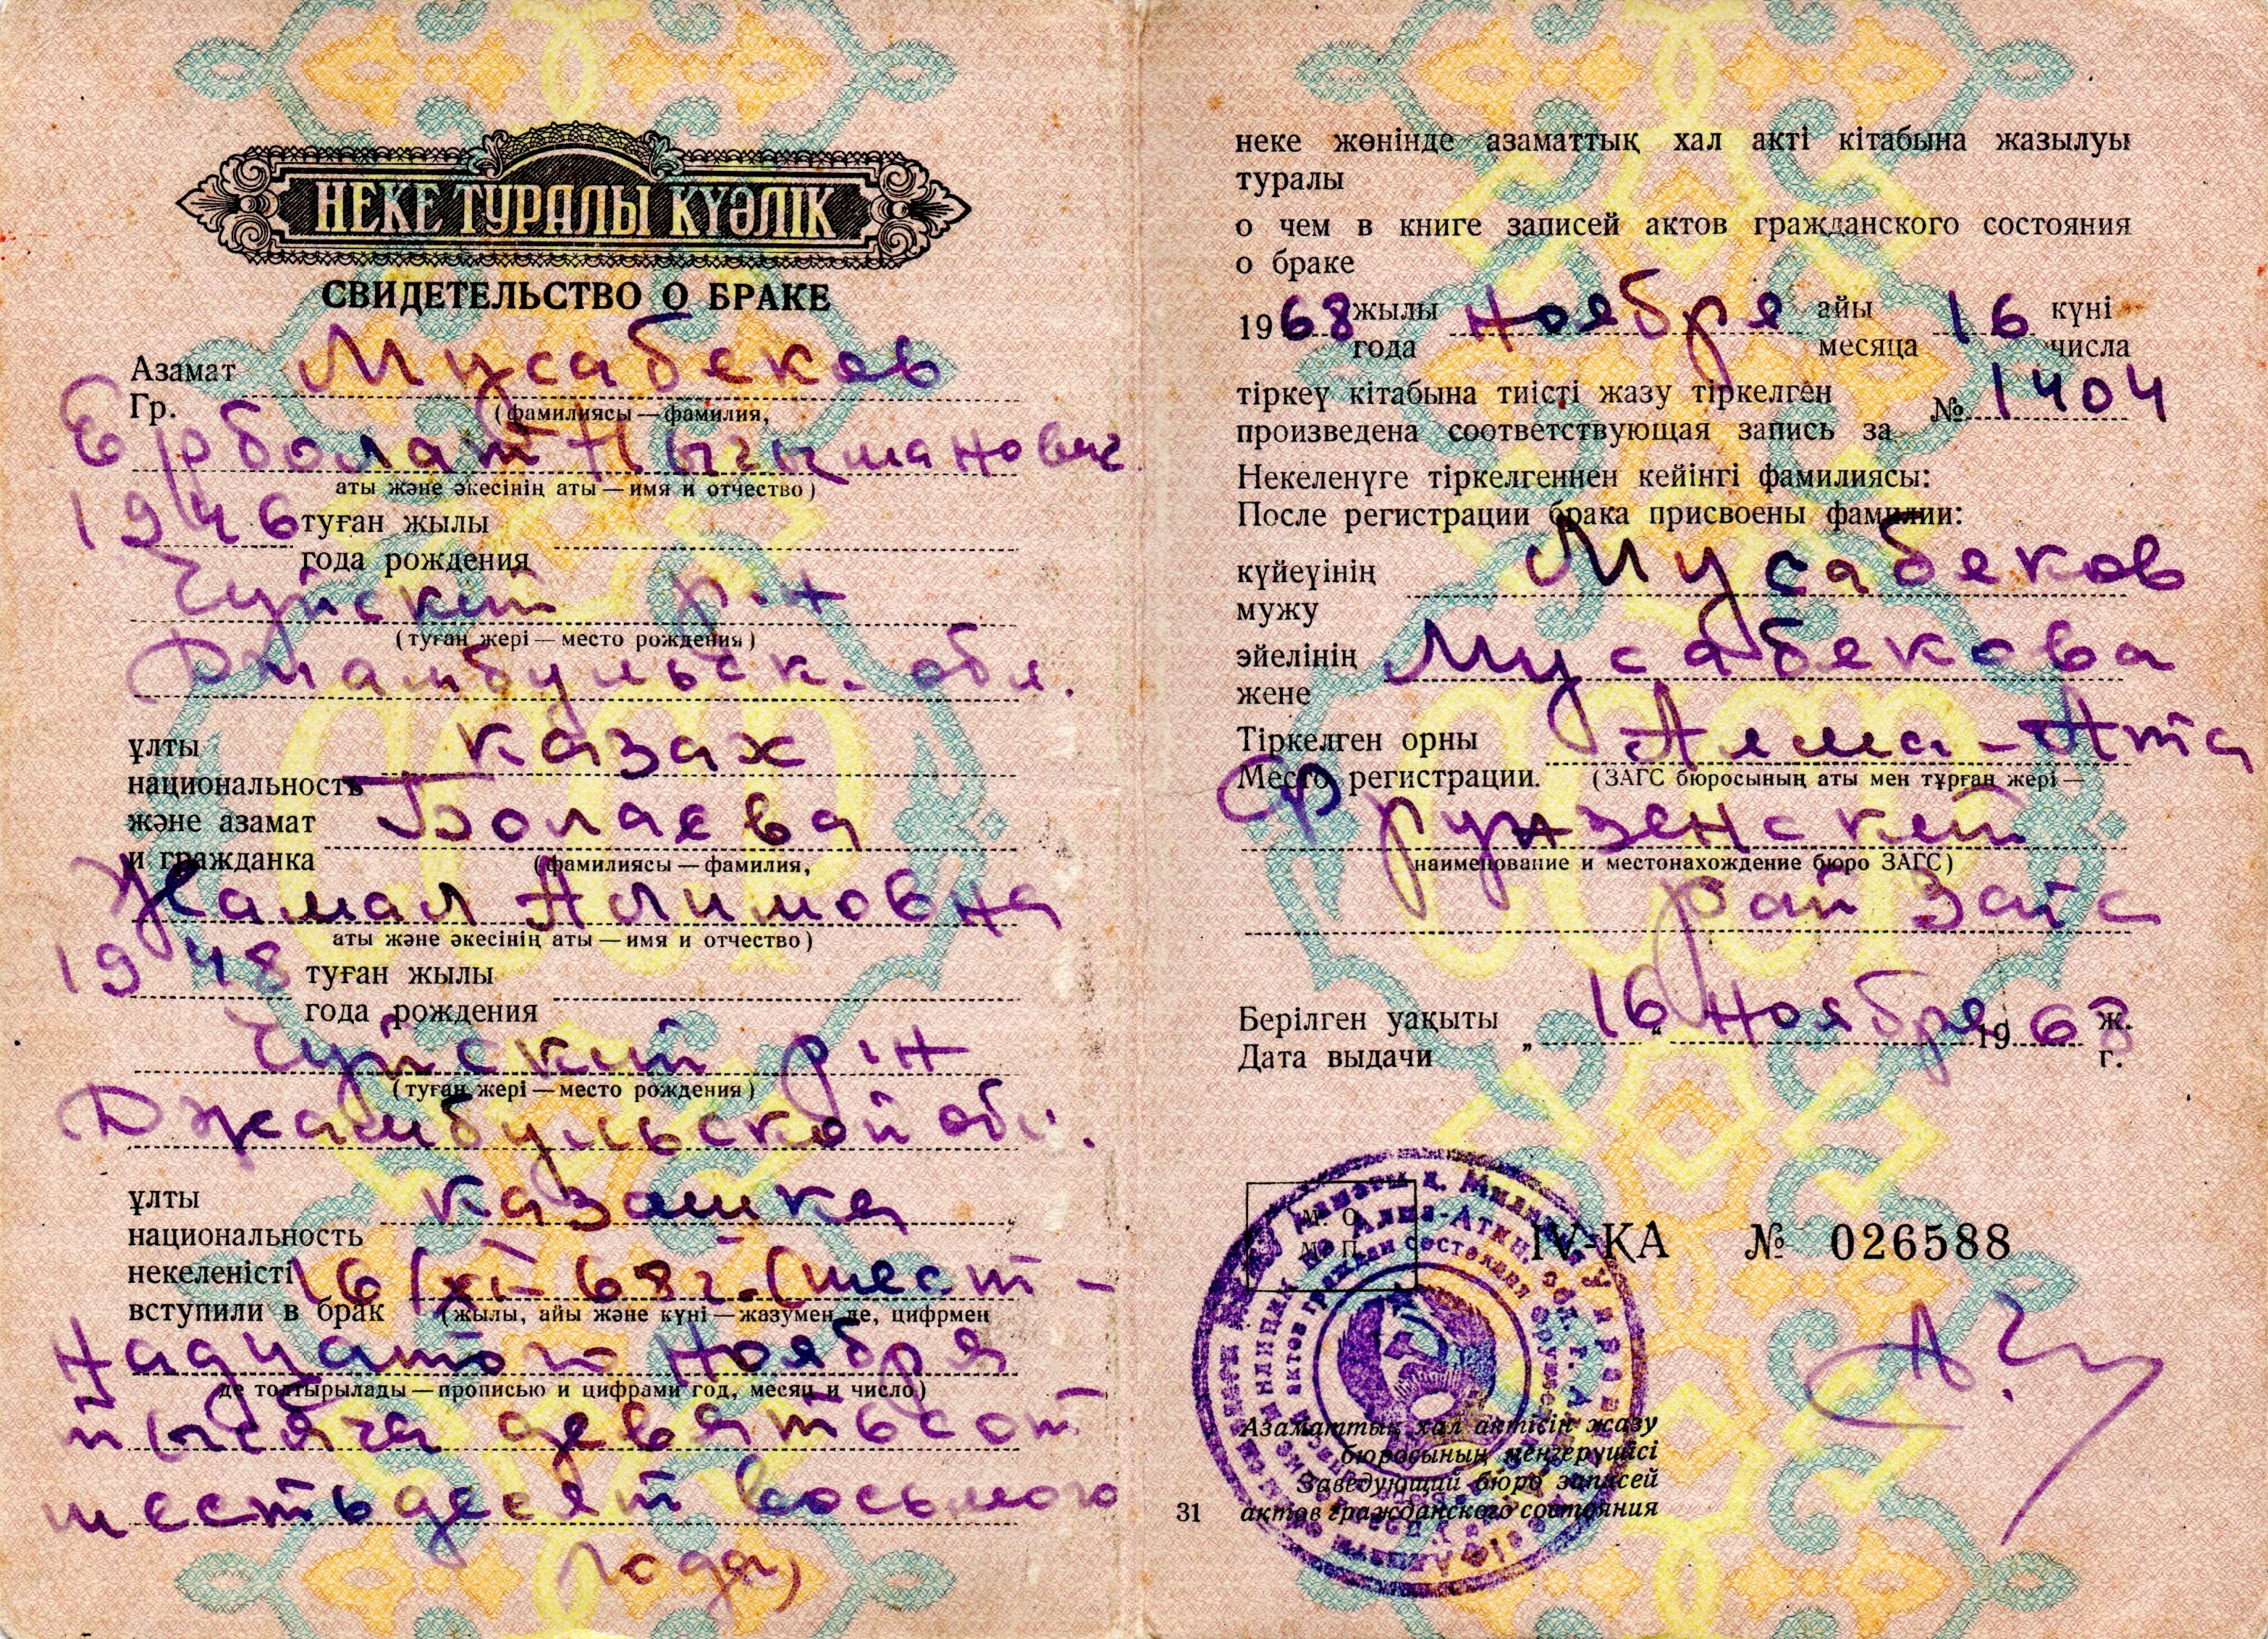 НЕКЕ ТУРАЛЫ КУӘЛІК
СВИДЕТЕЛЬСТВО О БРАКЕ
Азамат Мусабеков
Гр.
(фамилиясы — фамилия,
Ерболат Нығыманович
аты және әкесінің аты — имя и отчество)
1946 туған жылы
года рождения
Чуйский р-н
(туған жері — место рождения)
Джамбульск. обл.
ұлты казах
национальность
және азамат Болаева
и гражданка
(фамилиясы — фамилия,
Жамал Алимовна
аты және әкесінің аты — имя и отчество)
1948 туған жылы
года рождения
Чуйский р-н
(туған жері — место рождения)
Джамбульской обл.
ұлты казашка
национальность
некеленісті 16/XI-68г. (шест-
вступили в брак
(жылы, айы және күні — жазумен де, цифрмен
надцатого ноября
де толтырылады — прописью и цифрами год, месяц и число)
тысяча девятьсот
шестьдесят восьмого
года)
неке жөнінде азаматтық хал акті кітабына жазылуы
туралы
о чем в книге записей актов гражданского состояния
о браке
1968 жылы ноября айы 16 күні
года месяца числа
тіркеу кітабына тиісті жазу тіркелген № 1404
произведена соответствующая запись за
Некеленуге тіркелгеннен кейінгі фамилиясы:
После регистрации брака присвоены фамилии:
күйеуінің Мусабеков
мужу
әйелінің Мусабекова
жене
Тіркелген орны Алма-Ата
Место регистрации. (ЗАГС бюросының аты мен тұрған жері —
Фрунзенский
наименование и местонахождение бюро ЗАГС)
рай Загс
Берілген уақыты „16“ ноября 1968 ж.
Дата выдачи г.
М. О.
М. П.
IV-ҚА № 026588
Азаматтық хал актісін жазу
бюросының меңгерушісі
Заведующий бюро записей
31 актов гражданского состояния